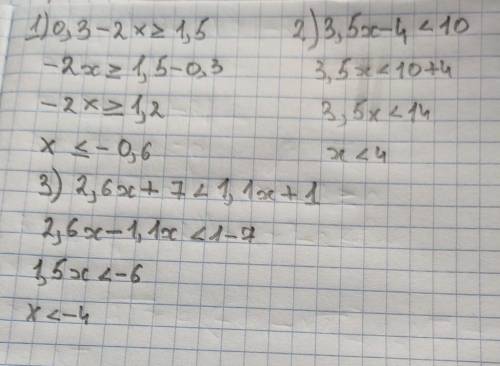 1) 0,3-2x ≥ 1,5
-2x ≥ 1,5-0,3
-2x ≥ 1,2
x ≤ -0,6
2) 3,5x-4 < 10
3,5x < 10+4
3,5x < 14
x < 4
3) 2,6x + 7 < 1,1x + 1
2,6x-1,1x < 1-7
1,5x < -6
x < -4